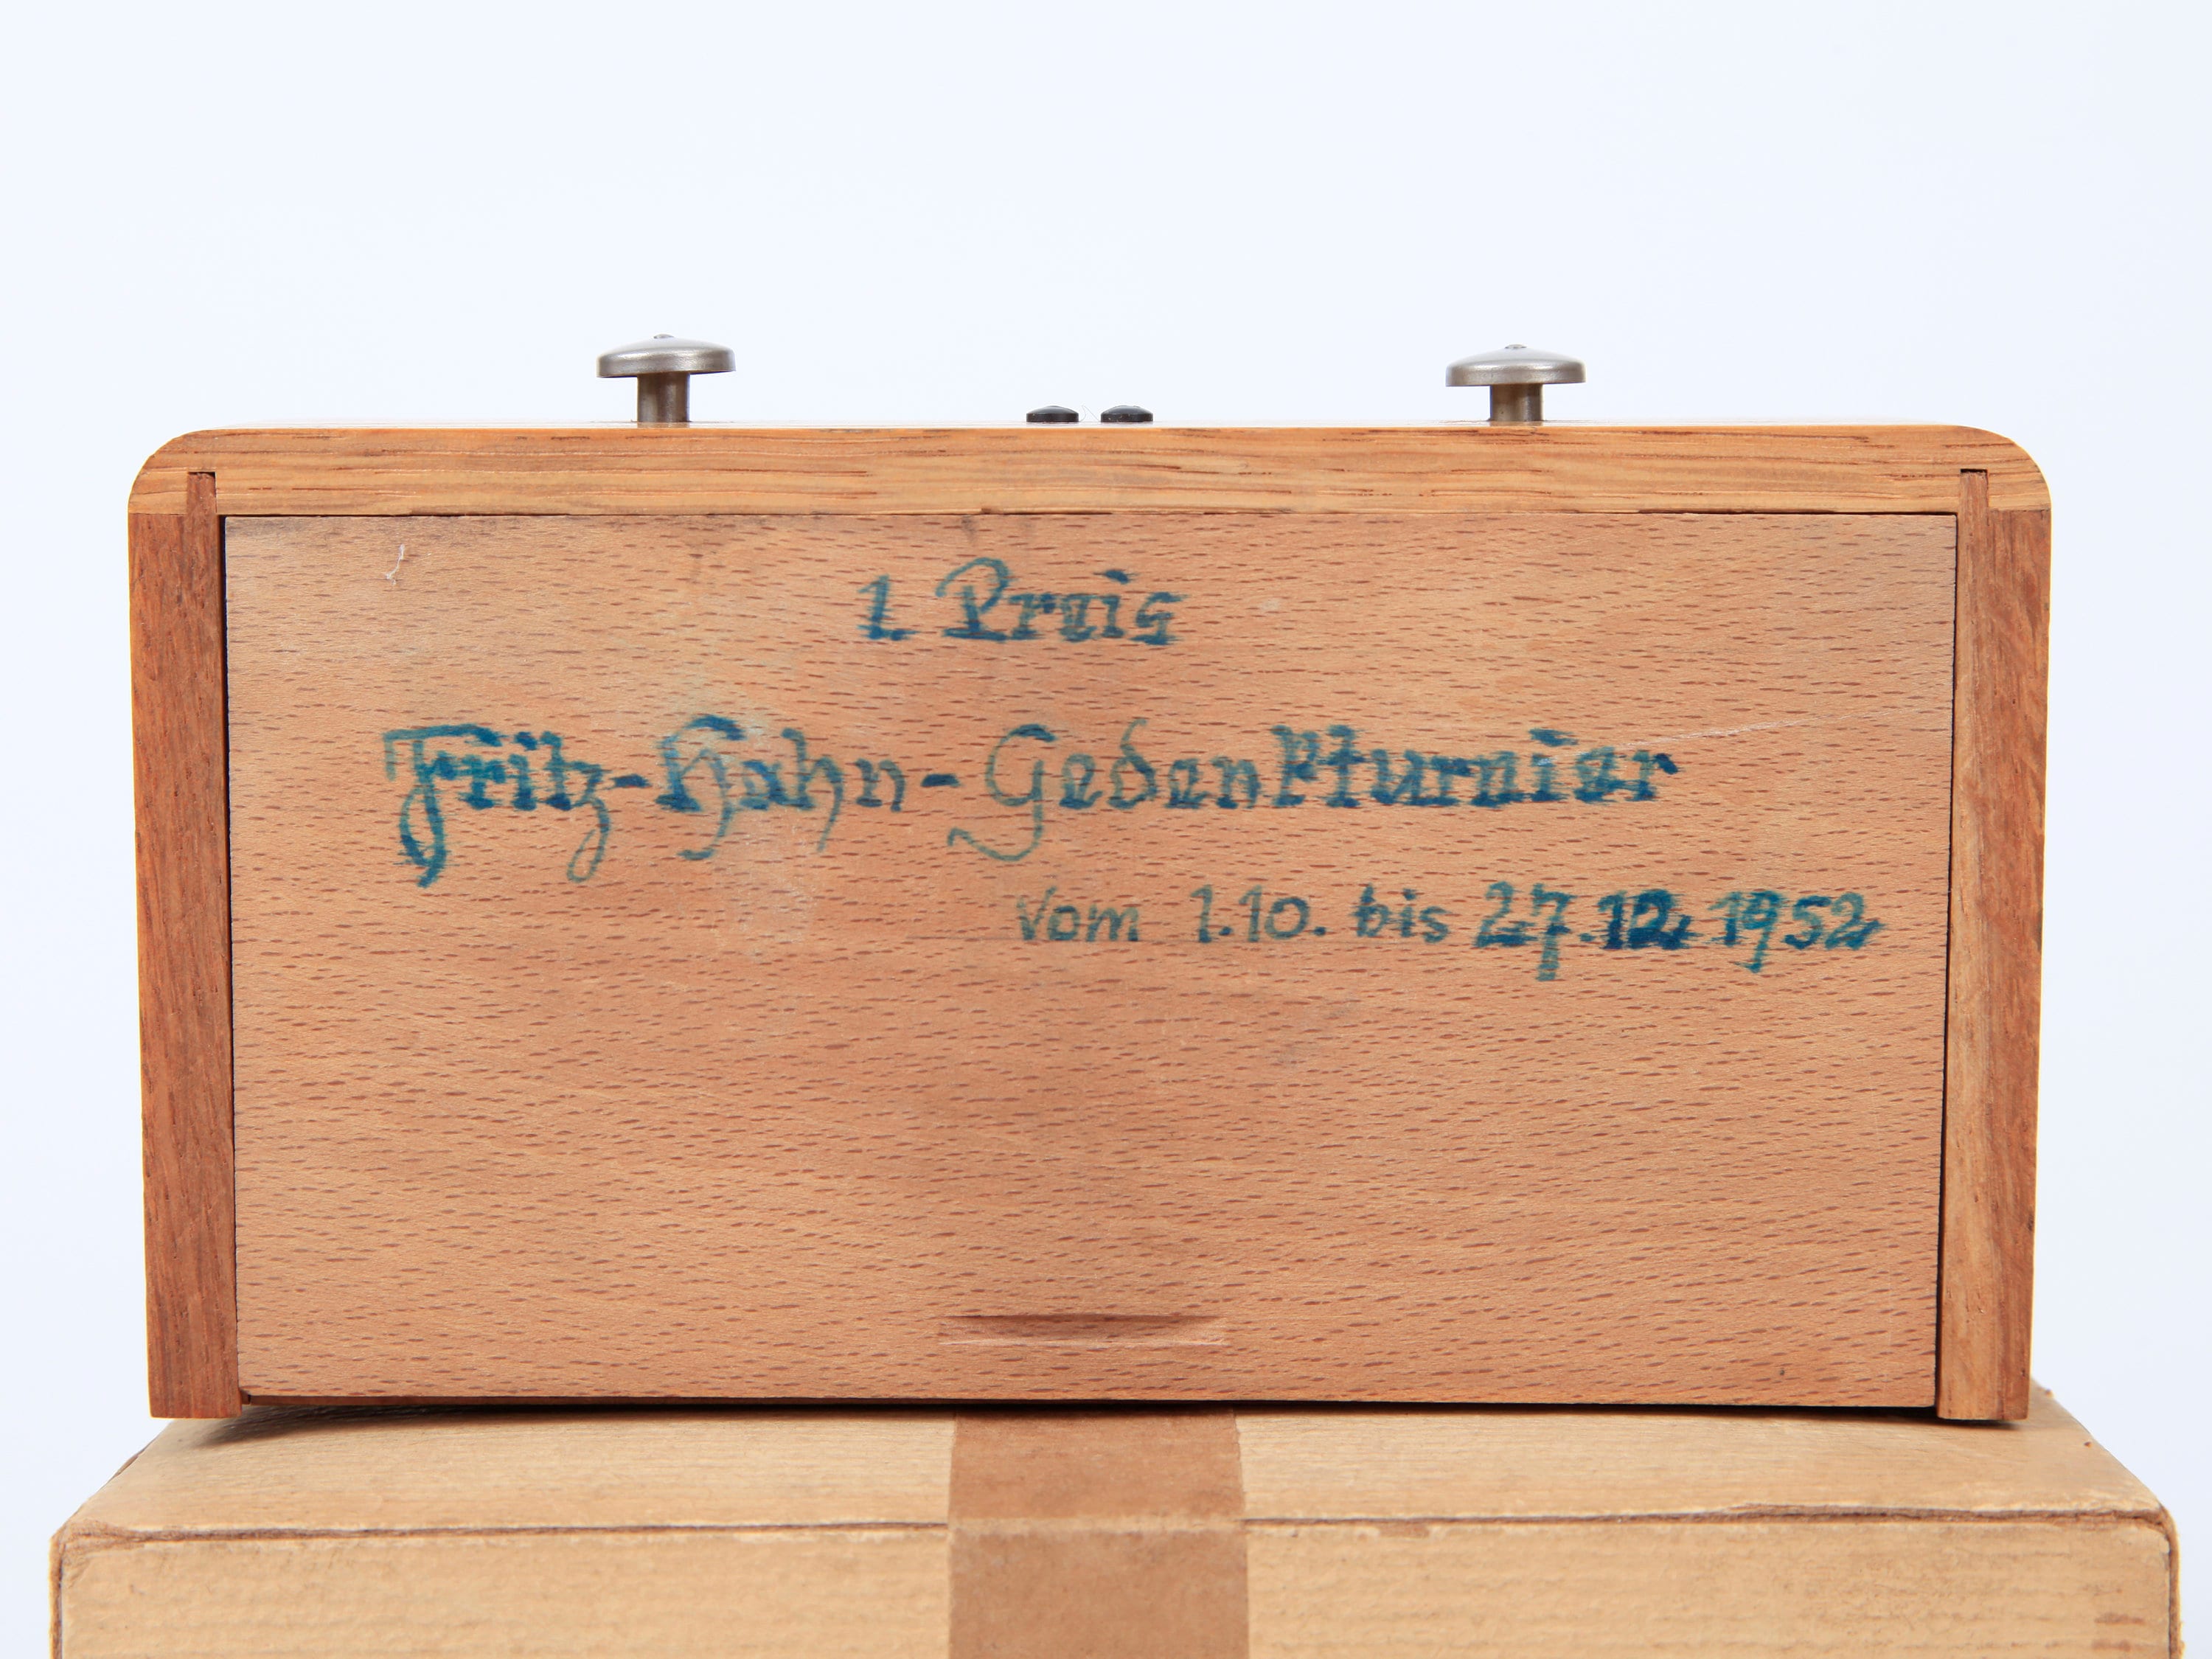 1. Preis
Fritz-Hahn-Gedenkturnier
vom 1.10. bis 27.12.1952